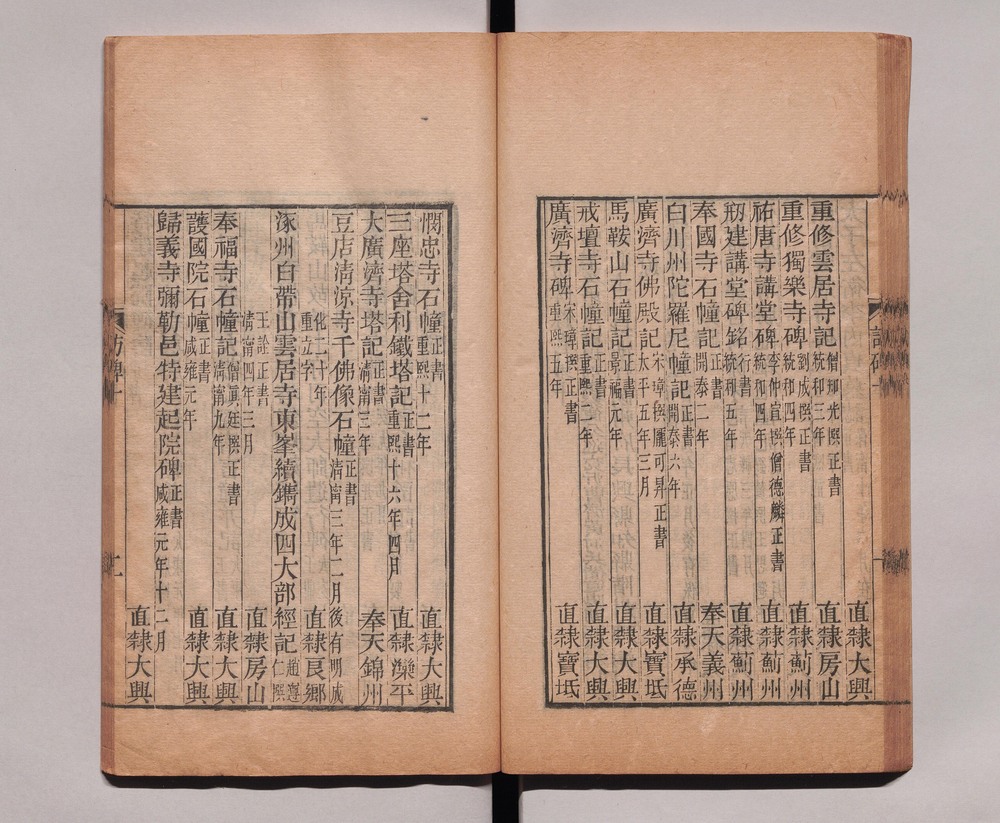 直隸大興
重修雲居寺記 僧智光撰正書 統和三年 直隸房山
重修獨樂寺碑 劉成撰正書 統和四年 直隸薊州
祐唐寺講堂碑 李仲宣撰僧德麟正書 統和四年 直隸薊州
剏建講堂碑銘 行書 統和五年 直隸薊州
奉國寺石幢記 正書 開泰二年 奉天義州
白川州陀羅尼幢記 正書 開泰六年 直隸承德
廣濟寺佛殿記 宋璋撰龐可昇正書 太平五年三月 直隸寶坻
馬鞍山石幢記 正書 景福元年 直隸大興
戒壇寺石幢記 正書 重熙二年 直隸大興
廣濟寺碑 宋璋撰正書 重熙五年 直隸寶坻
憫忠寺石幢 正書 重熙十二年 直隸大興
三座塔舍利鐵塔記 正書 重熙十六年四月 直隸灤平
大廣濟寺塔記 正書 清甯三年 奉天錦州
豆店清涼寺千佛像石幢 正書 清甯三年二月後有明成
化二十年重立字 直隸良鄉
涿州白帶山雲居寺東峯續鐫成四大部經記 趙遵仁撰
王詮正書 清甯四年三月 直隸房山
奉福寺石幢記 僧眞延撰正書 清甯九年 直隸大興
護國院石幢 正書 咸雍元年 直隸大興
歸義寺彌勒邑特建起院碑 正書 咸雍元年十二月
直隸大興
訪碑
十一